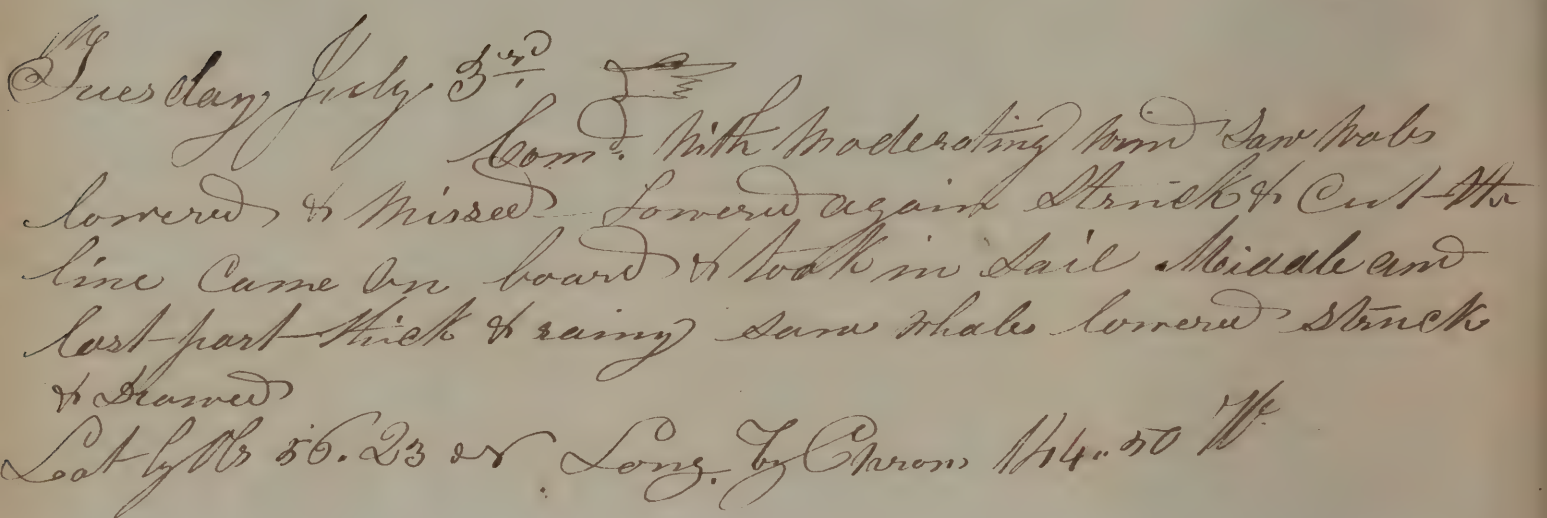 Tuesday July 3rd.
Comd. With Moderating wind Saw whales
lowered & Missed Lowered again Struck & Cut the
line Came on board & took in Sail Middle and
last part thick & rainy saw whales lowered struck
& Drawed
Lat by Obs 56.23 N Long. by Chrom 144..50 W.